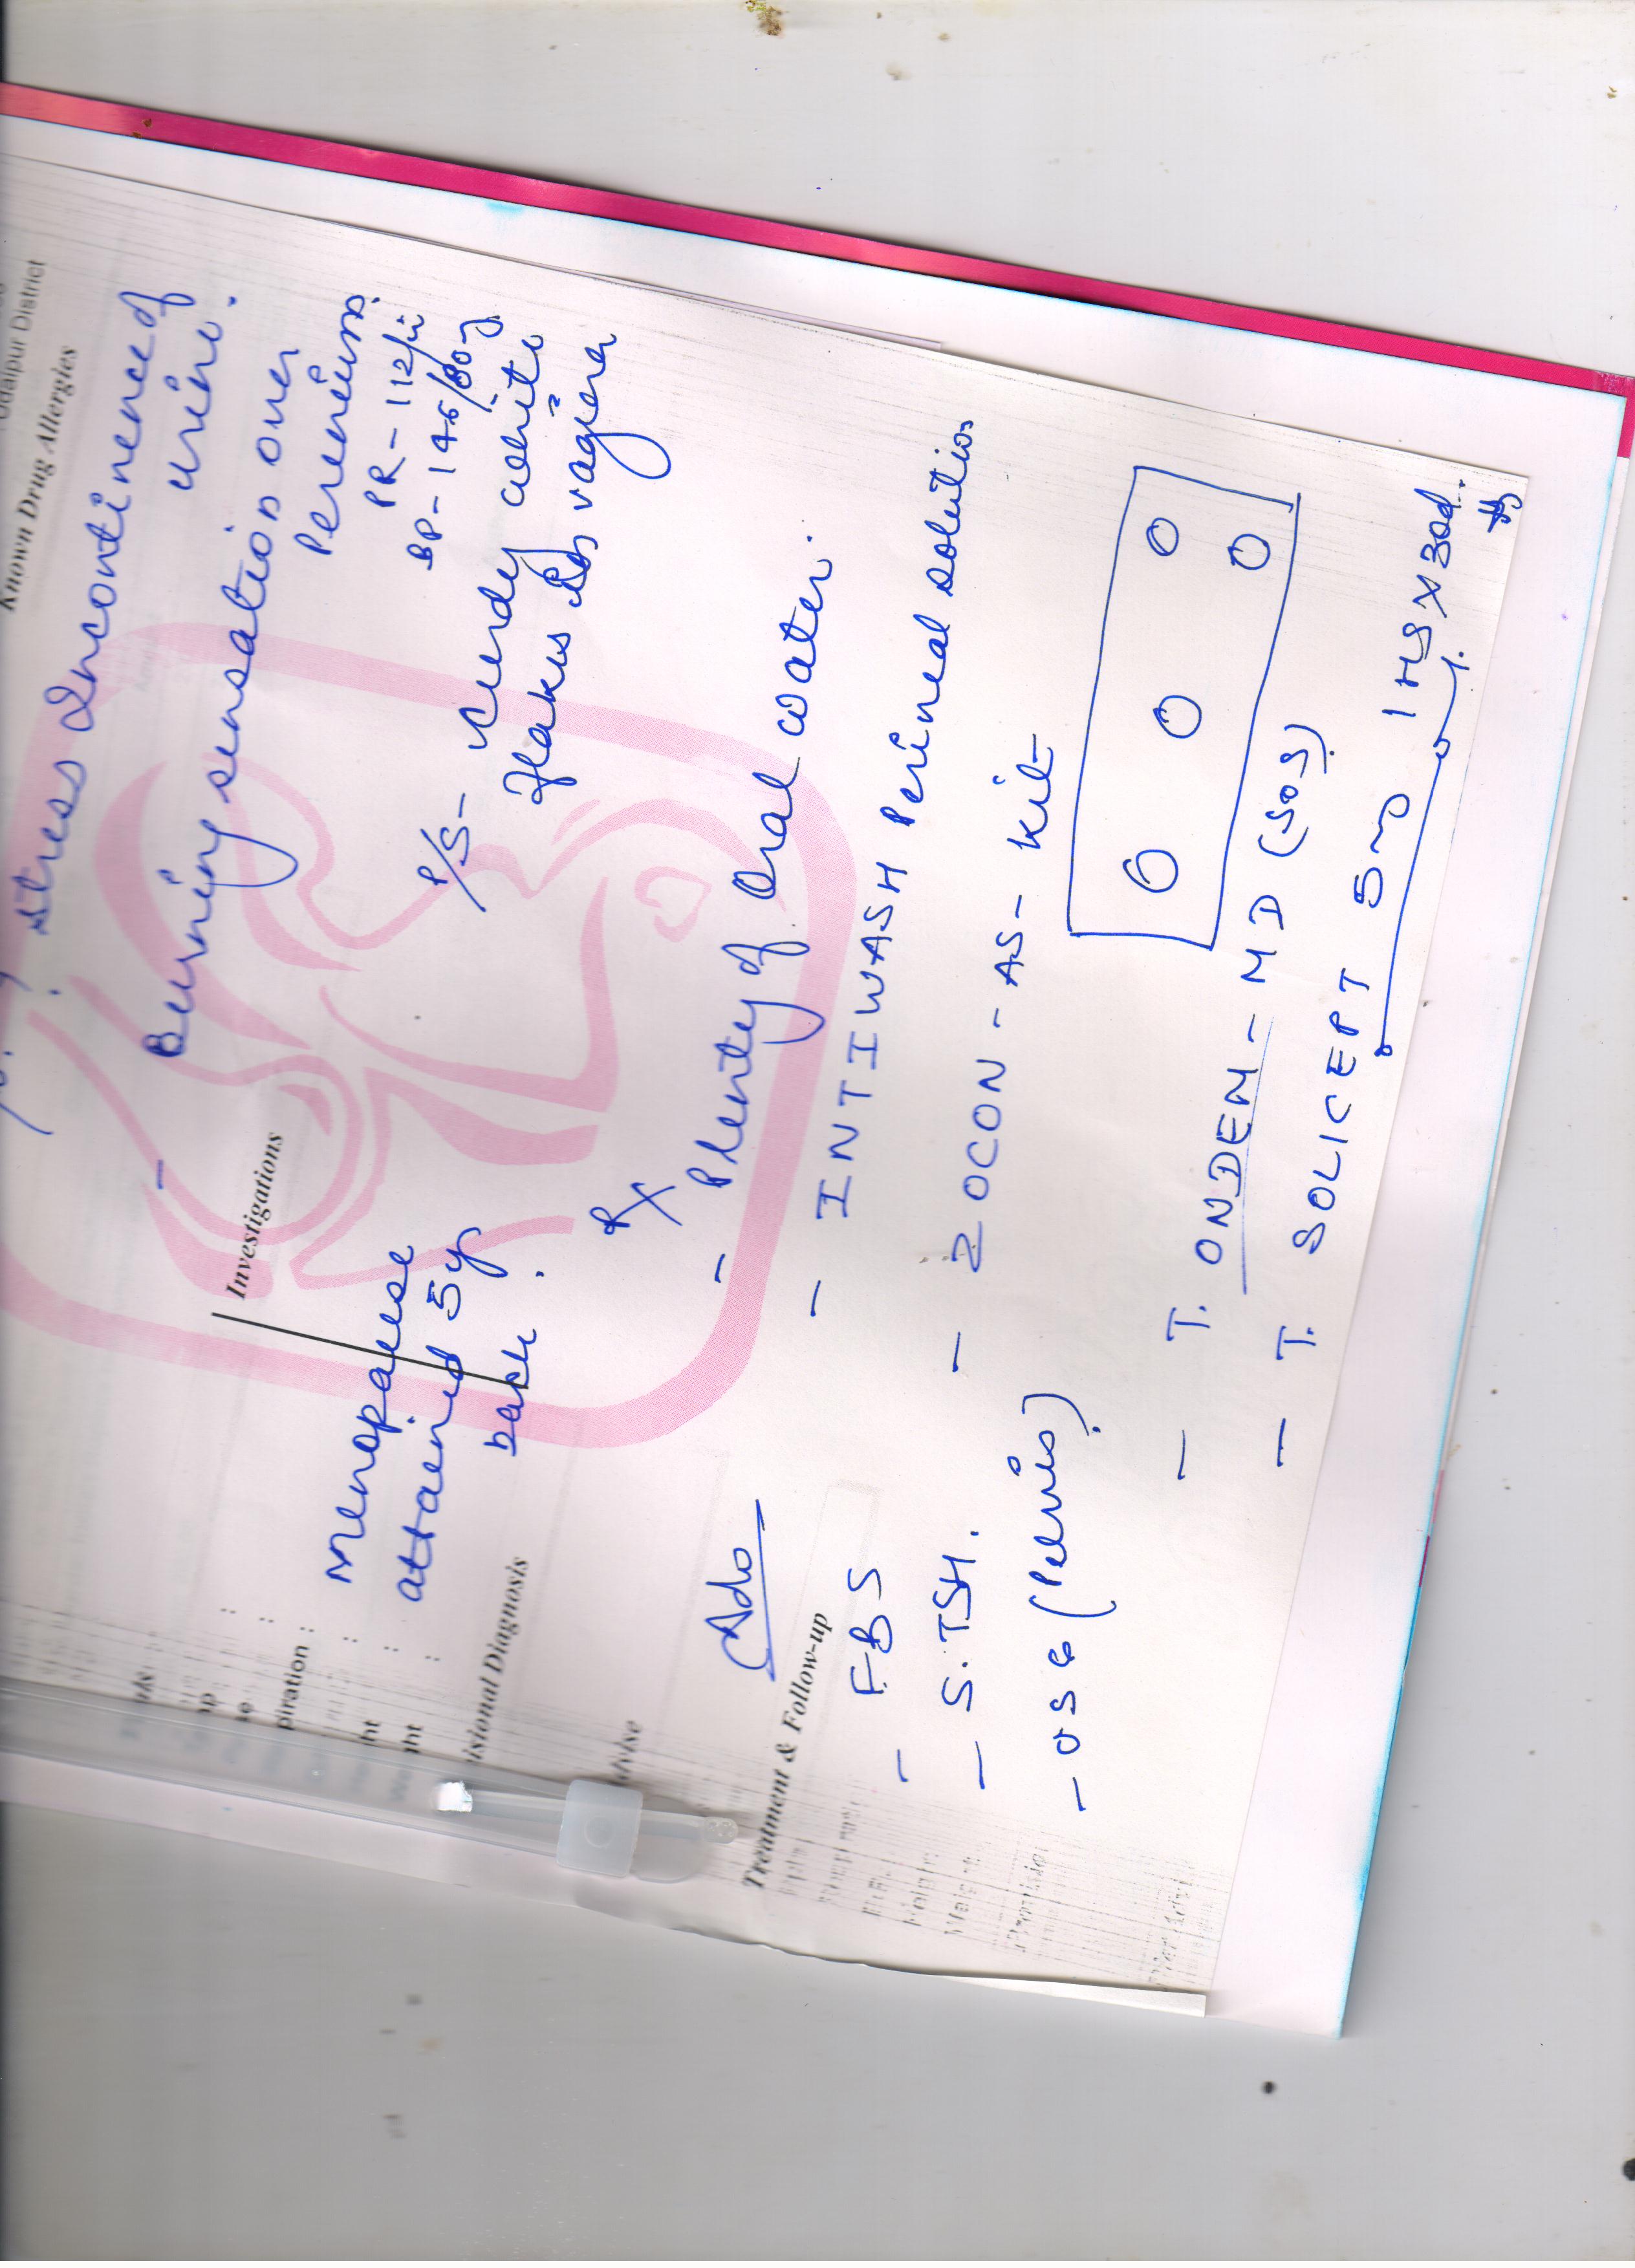 Udaipur District
Known Drug Allergies
stress Incontinence of
urine.
- Burning sensation over
Perenium.
PR - 112/mi
BP - 146/80
P/S - Curdy white
flakes in vagina
Investigations
Menopause
attained 5yr
back.
piration :
ht :
ght :
isional Diagnosis
dvise
Rx
- Plenty of Oral water.
- INTIWASH Perineal solution
- ZOCON - AS - Kit
- T. ONDEM - MD (SOS)
- T. SOLICEPT 5mg 1 HS X 30d.
Adv
Treatment & Follow-up
- FBS
- S. TSH.
- USG (Pelvis)